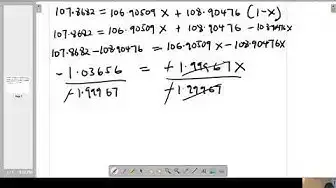 107.8682 = 106.90509 x + 108.90476 (1-x)
107.8682 = 106.90509 x + 108.90476 - 108.90476x
107.8682-108.90476 = 106.90509x - 108.90476x
-1.03656 = -1.99967 x
-1.99967 -1.99967